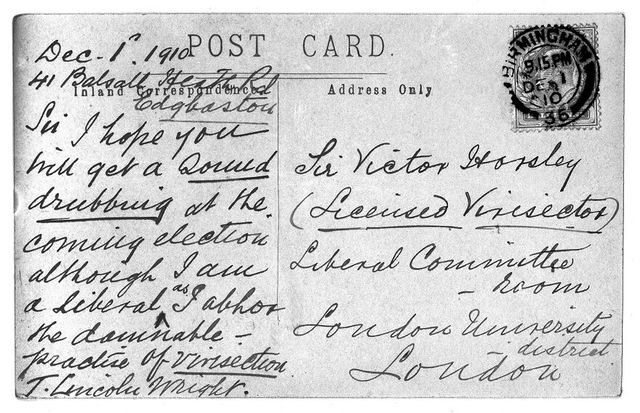 POST CARD.
Inland Correspondence.
Address Only
Dec. 1st. 1910
41 Balsall Heath Rd
Edgbaston
Sir I hope you
will get a sound
drubbing at the
coming election
although I am
a Liberal as I abhor
the damnable -
practise of Vivisection
T. Lincoln Wright.
Sir Victor Horsley
(Licensed Vivisector)
Liberal Committee
- room
London University
district
London
BIRMINGHAM
9.15 PM
DE 1
10
36